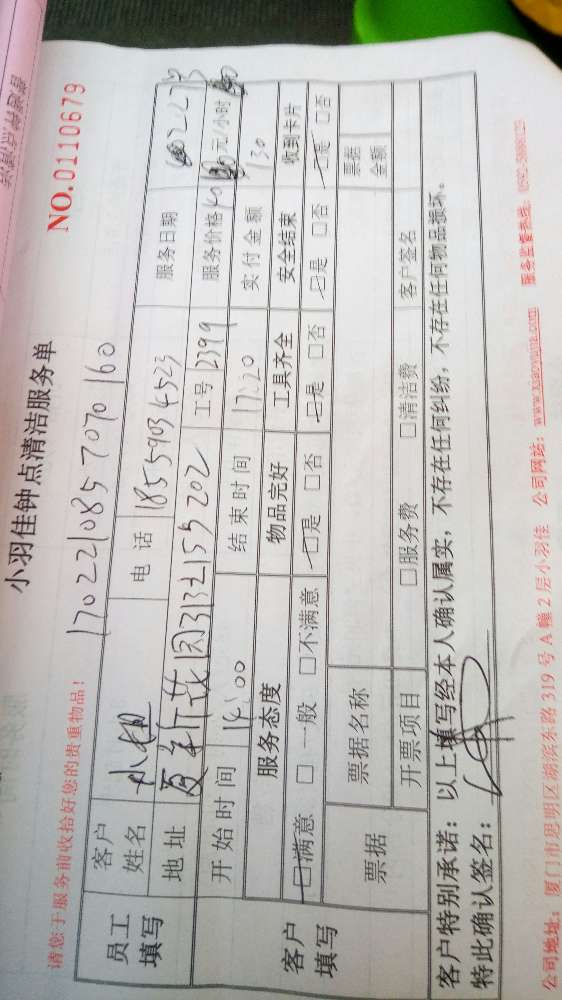 小羽佳钟点清洁服务单
NO.0110679
请您于服务前收拾好您的贵重物品！
1702210857070160
员工填写
客户姓名 小姐 电话 18559034523 服务日期
地址 夏新花园313之155 202 工号 2399 服务价格 40 元/小时
客户填写
开始时间 14:00 结束时间 17:20 实付金额 130
服务态度 物品完好 工具齐全 安全结束 收到卡片
□满意 □一般 □不满意 □是 □否 □是 □否 □是 □否 □是 □否
票据 票据名称 票据金额
开票项目 □服务费 □清洁费 客户签名
客户特别承诺：以上填写经本人确认属实，不存在任何纠纷，不存在任何物品损坏。
特此确认签名：
公司地址：厦门市思明区湖滨东路 319 号 A 幢 2 层小羽佳 公司网站：www.xiaoyujia.com 服务监督热线：